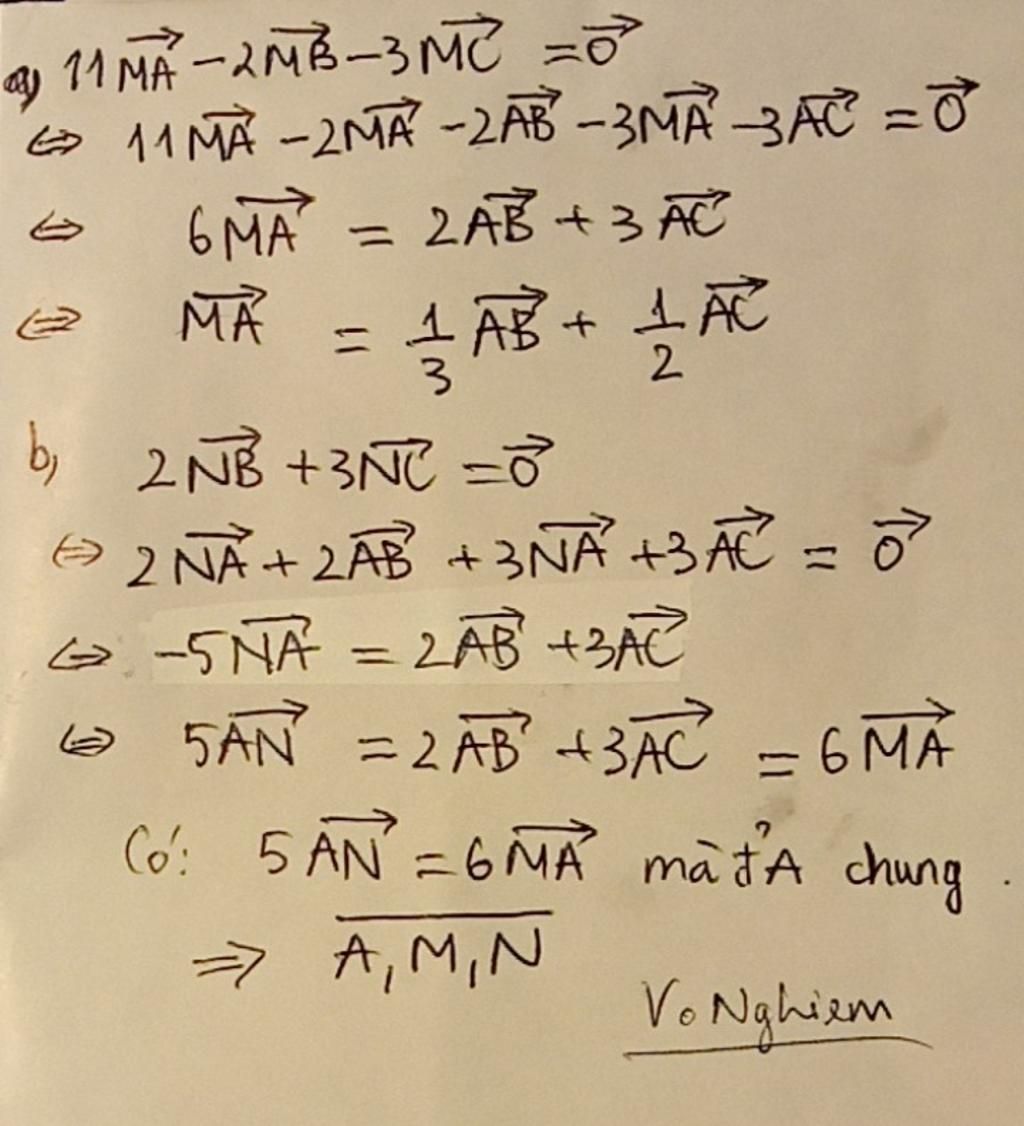 a) 11\overrightarrow{MA} - 2\overrightarrow{MB} - 3\overrightarrow{MC} = \overrightarrow{0}
⇔ 11\overrightarrow{MA} - 2\overrightarrow{MA} - 2\overrightarrow{AB} - 3\overrightarrow{MA} - 3\overrightarrow{AC} = \overrightarrow{0}
⇔ 6\overrightarrow{MA} = 2\overrightarrow{AB} + 3\overrightarrow{AC}
⇔ \overrightarrow{MA} = \frac{1}{3}\overrightarrow{AB} + \frac{1}{2}\overrightarrow{AC}
b) 2\overrightarrow{NB} + 3\overrightarrow{NC} = \overrightarrow{0}
⇔ 2\overrightarrow{NA} + 2\overrightarrow{AB} + 3\overrightarrow{NA} + 3\overrightarrow{AC} = \overrightarrow{0}
⇔ -5\overrightarrow{NA} = 2\overrightarrow{AB} + 3\overrightarrow{AC}
⇔ 5\overrightarrow{AN} = 2\overrightarrow{AB} + 3\overrightarrow{AC} = 6\overrightarrow{MA}
Có: 5\overrightarrow{AN} = 6\overrightarrow{MA} mà đ'A chung.
⇒ \overline{A, M, N}
Vo Nghiem